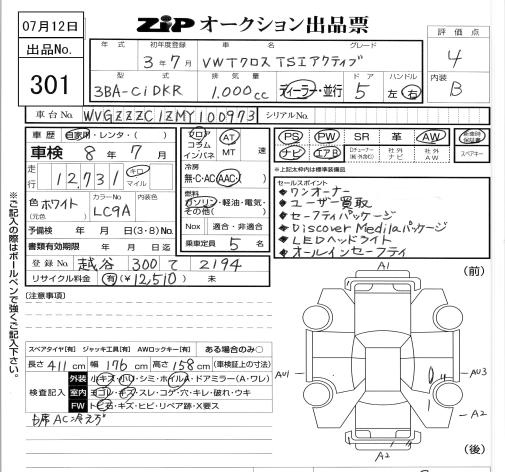 07月12日
ZiP オークション出品票
評価点
4
内装
B
出品No.
301
年式
初年度登録 3年7月
車名 VWTクロス TSIアクティブ
グレード
型式 3BA-C1DKR
排気量 1.000cc
ディーラー・並行
ドア 5
ハンドル 左・右
車台No. WVGZZZC1ZMY100973
シリアルNo.
車歴 自家用・レンタ・( )
車検 8年7月
走行 12,731 キロ マイル
色 ホワイト
(元色)
カラーNo LC9A
内装色
予備検 年 月 日(3・8)No.
書類有効期限 年 月 日迄
登録No 越谷 300 て 2194
リサイクル料金 有(¥12,510) 未
フロア
コラム
インパネ
AT
MT
速
冷房
無・C・AC・AAC
燃料
ガソリン・軽油・電気・
その他( )
Nox 適合・非適合
乗車定員 5 名
PS PW SR 革 AW
ナビ エアB
社外ナビ
社外AW
スペアキー
※上記太枠内は標準装備品
セールスポイント
◆ワンオーナー
◆ユーザー買取
◆セーフティパッケージ
◆Discover Mediaパッケージ
◆LEDヘッドライト
◆オールインセーフティ
※ご記入の際はボールペンで強くご記入下さい。
(注意事項)
スペアタイヤ[有] ジャッキ工具[有] AWロックキー[有] ある場合のみ○
長さ 411 cm 幅 176 cm 高さ 158 cm (車検証上の寸法)
検査記入
外装 小キズ・小凹・シミ・ホイルA・ドアミラー(A・ワレ)
室内 ヨゴレ・キズ・スレ・コゲ・穴・キレ・破れ・ウキ
FW トビ石・キズ・ヒビ・リペア跡・X要ス
AC冷えず
A1
(前)
AU1
AU3
A2
A2
(後)